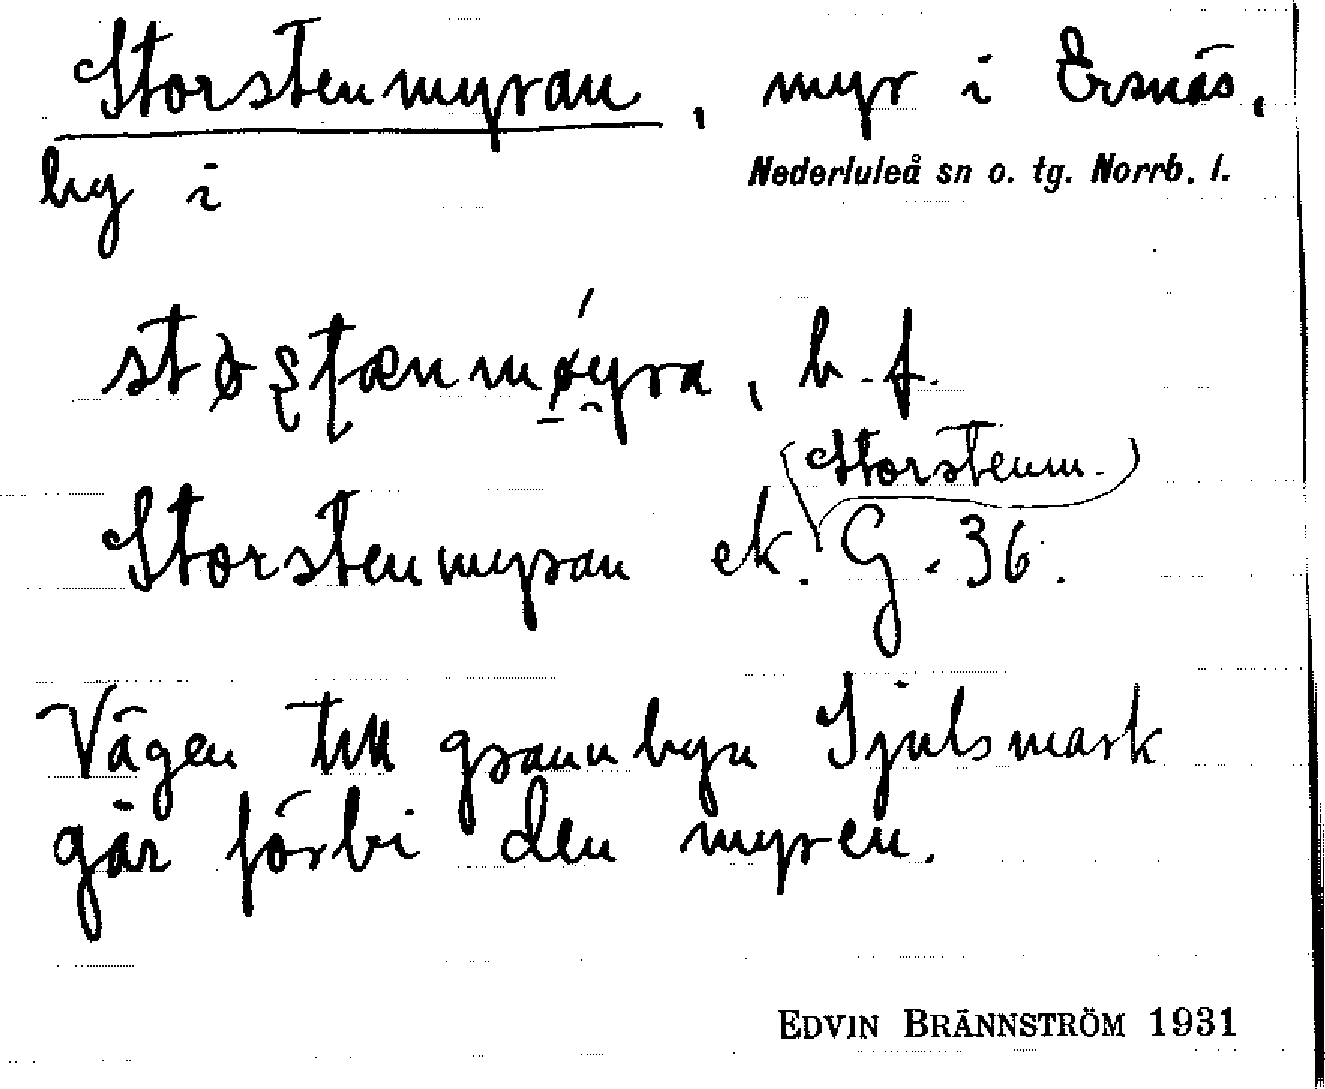 Storstenmyran, myr i Ersnäs,
by i Nederluleå sn o. tg. Norrb. l.
b. f.
(Storstenm.)
Storstenmyran ek. G. 36.
Vägen till grannbyn Sjulsmark
går förbi den myren.
EDVIN BRÄNNSTRÖM 1931